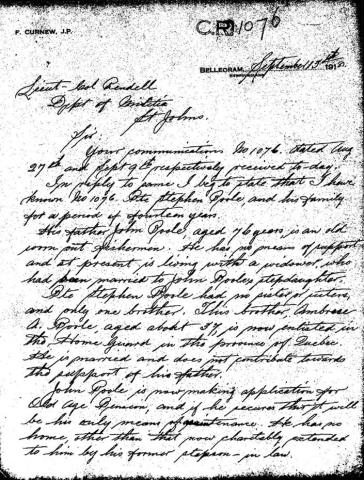 F. CURNEW, J.P.
C.R. 1076
BELLEORAM, September 13th 191
Lieut-Col Rendell
Dept of Militia
St Johns.
Sir
Your communication No 1076. dated Aug
27th and Sept 9th respectively received to-day.
In reply to same I beg to state that I have
known No 1076. Pte Stephen Poole, and his family
for a period of fourteen years.
His father John Poole, aged 76 years is an old
worn out fisherman. He has no means of support
and at present is living with a widower, who
had been married to John Pooles stepdaughter.
Pte Stephen Poole had no sister or sisters,
and only one brother. This brother, Ambrose
A. Poole, aged about 37, is now enlisted in
the Home Guard in the province of Quebec.
He is married and does not contribute towards
the support of his father.
John Poole is now making application for
Old Age Pension, and if he secures that it will
be his only means of maintenance. He has no
home, other than that now charitably extended
to him by his former stepson-in law.